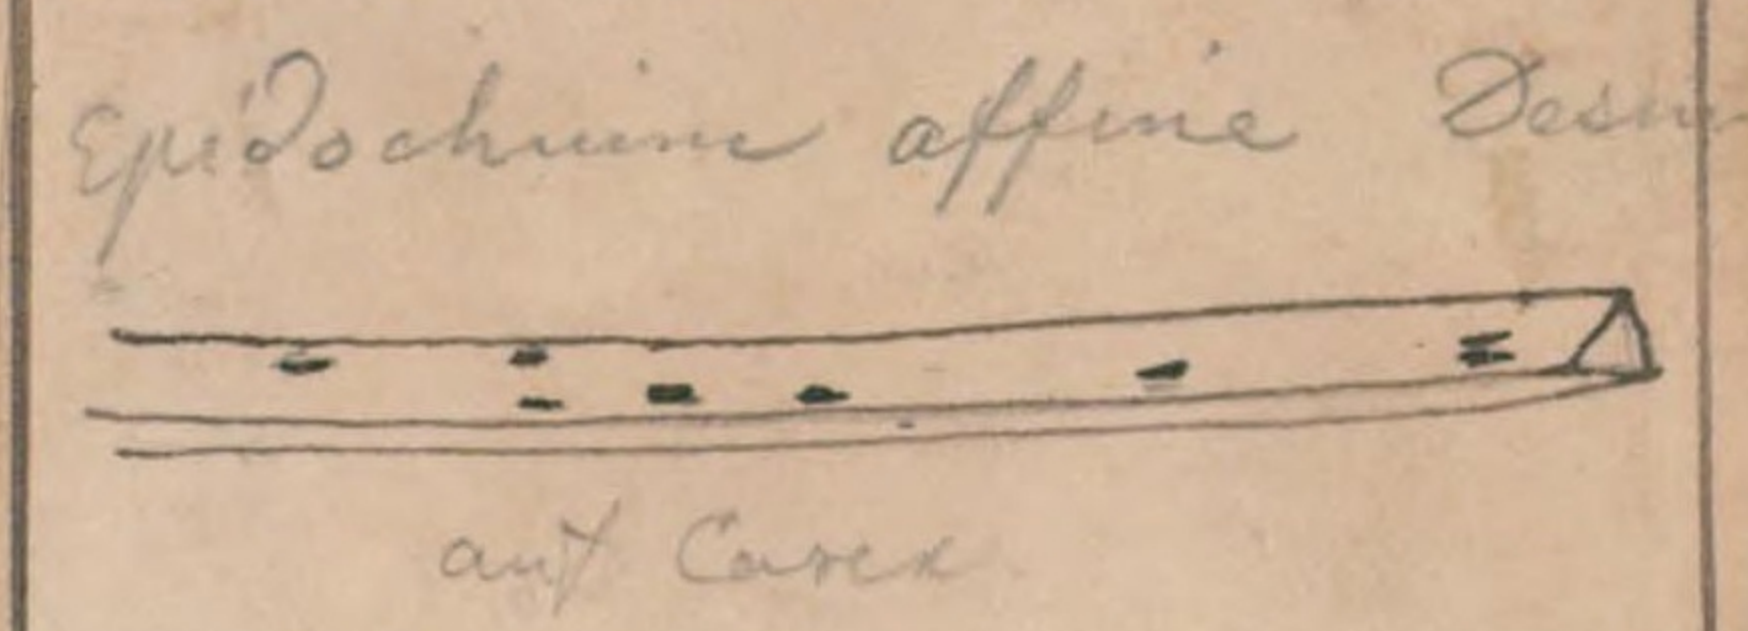 Epidochium affine Desm
auf Carex